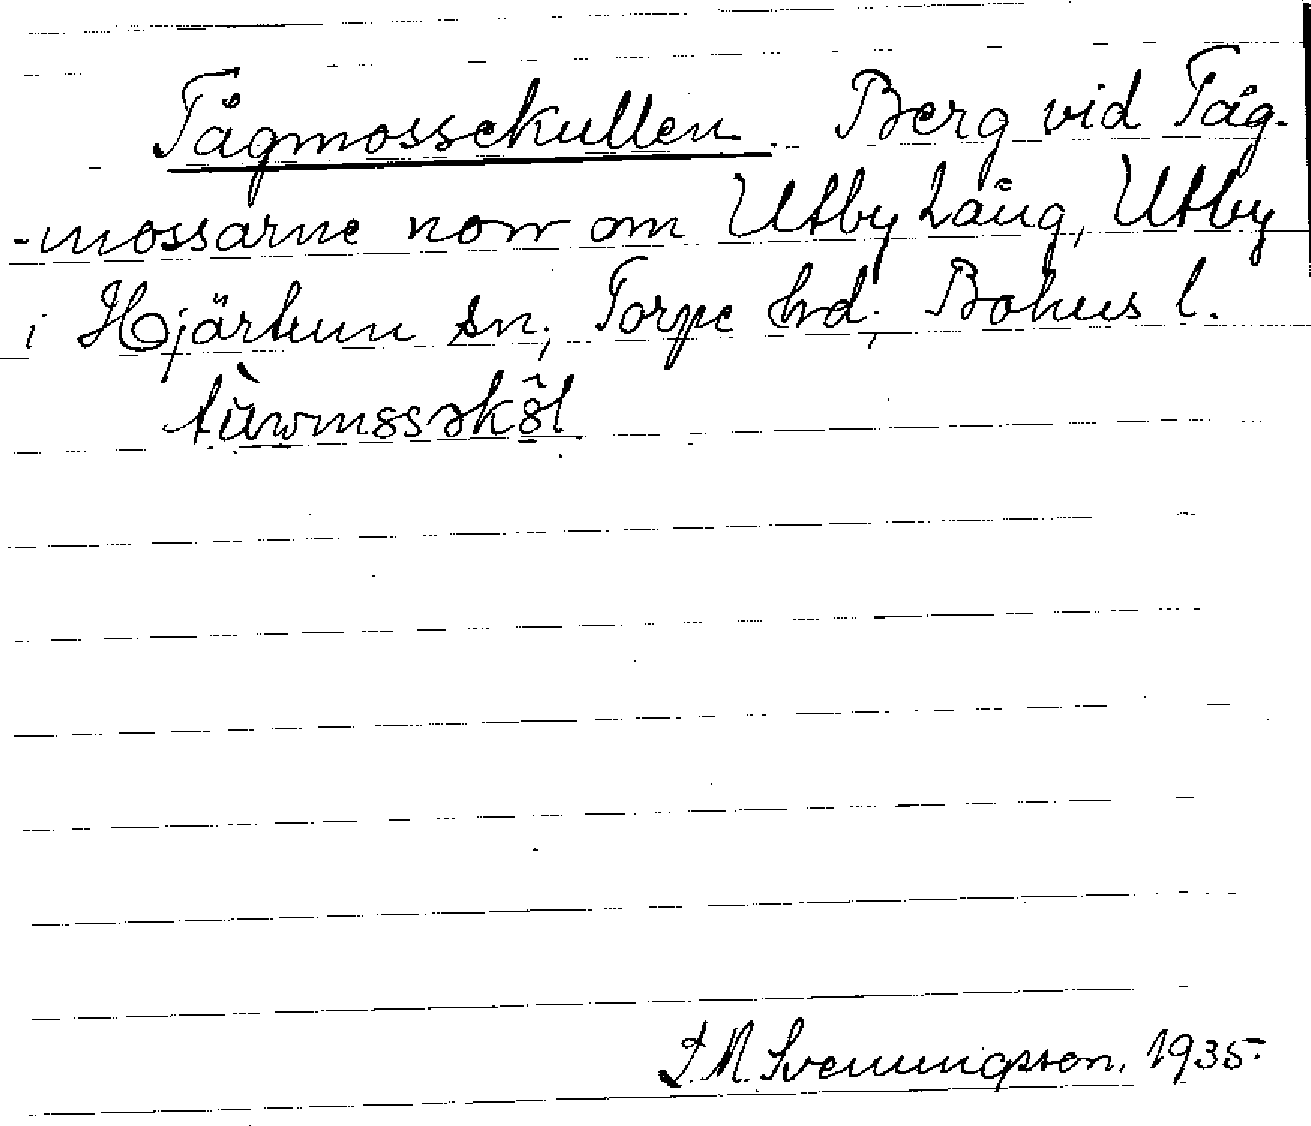 Tågmossekullen. Berg vid Tåg-
-mossarne norr om Utby Låug, Utby
i Hjärtum sn, Torpe hd, Bohus l.
tùwmssəkôl
J. M. Svenningsson, 1935.